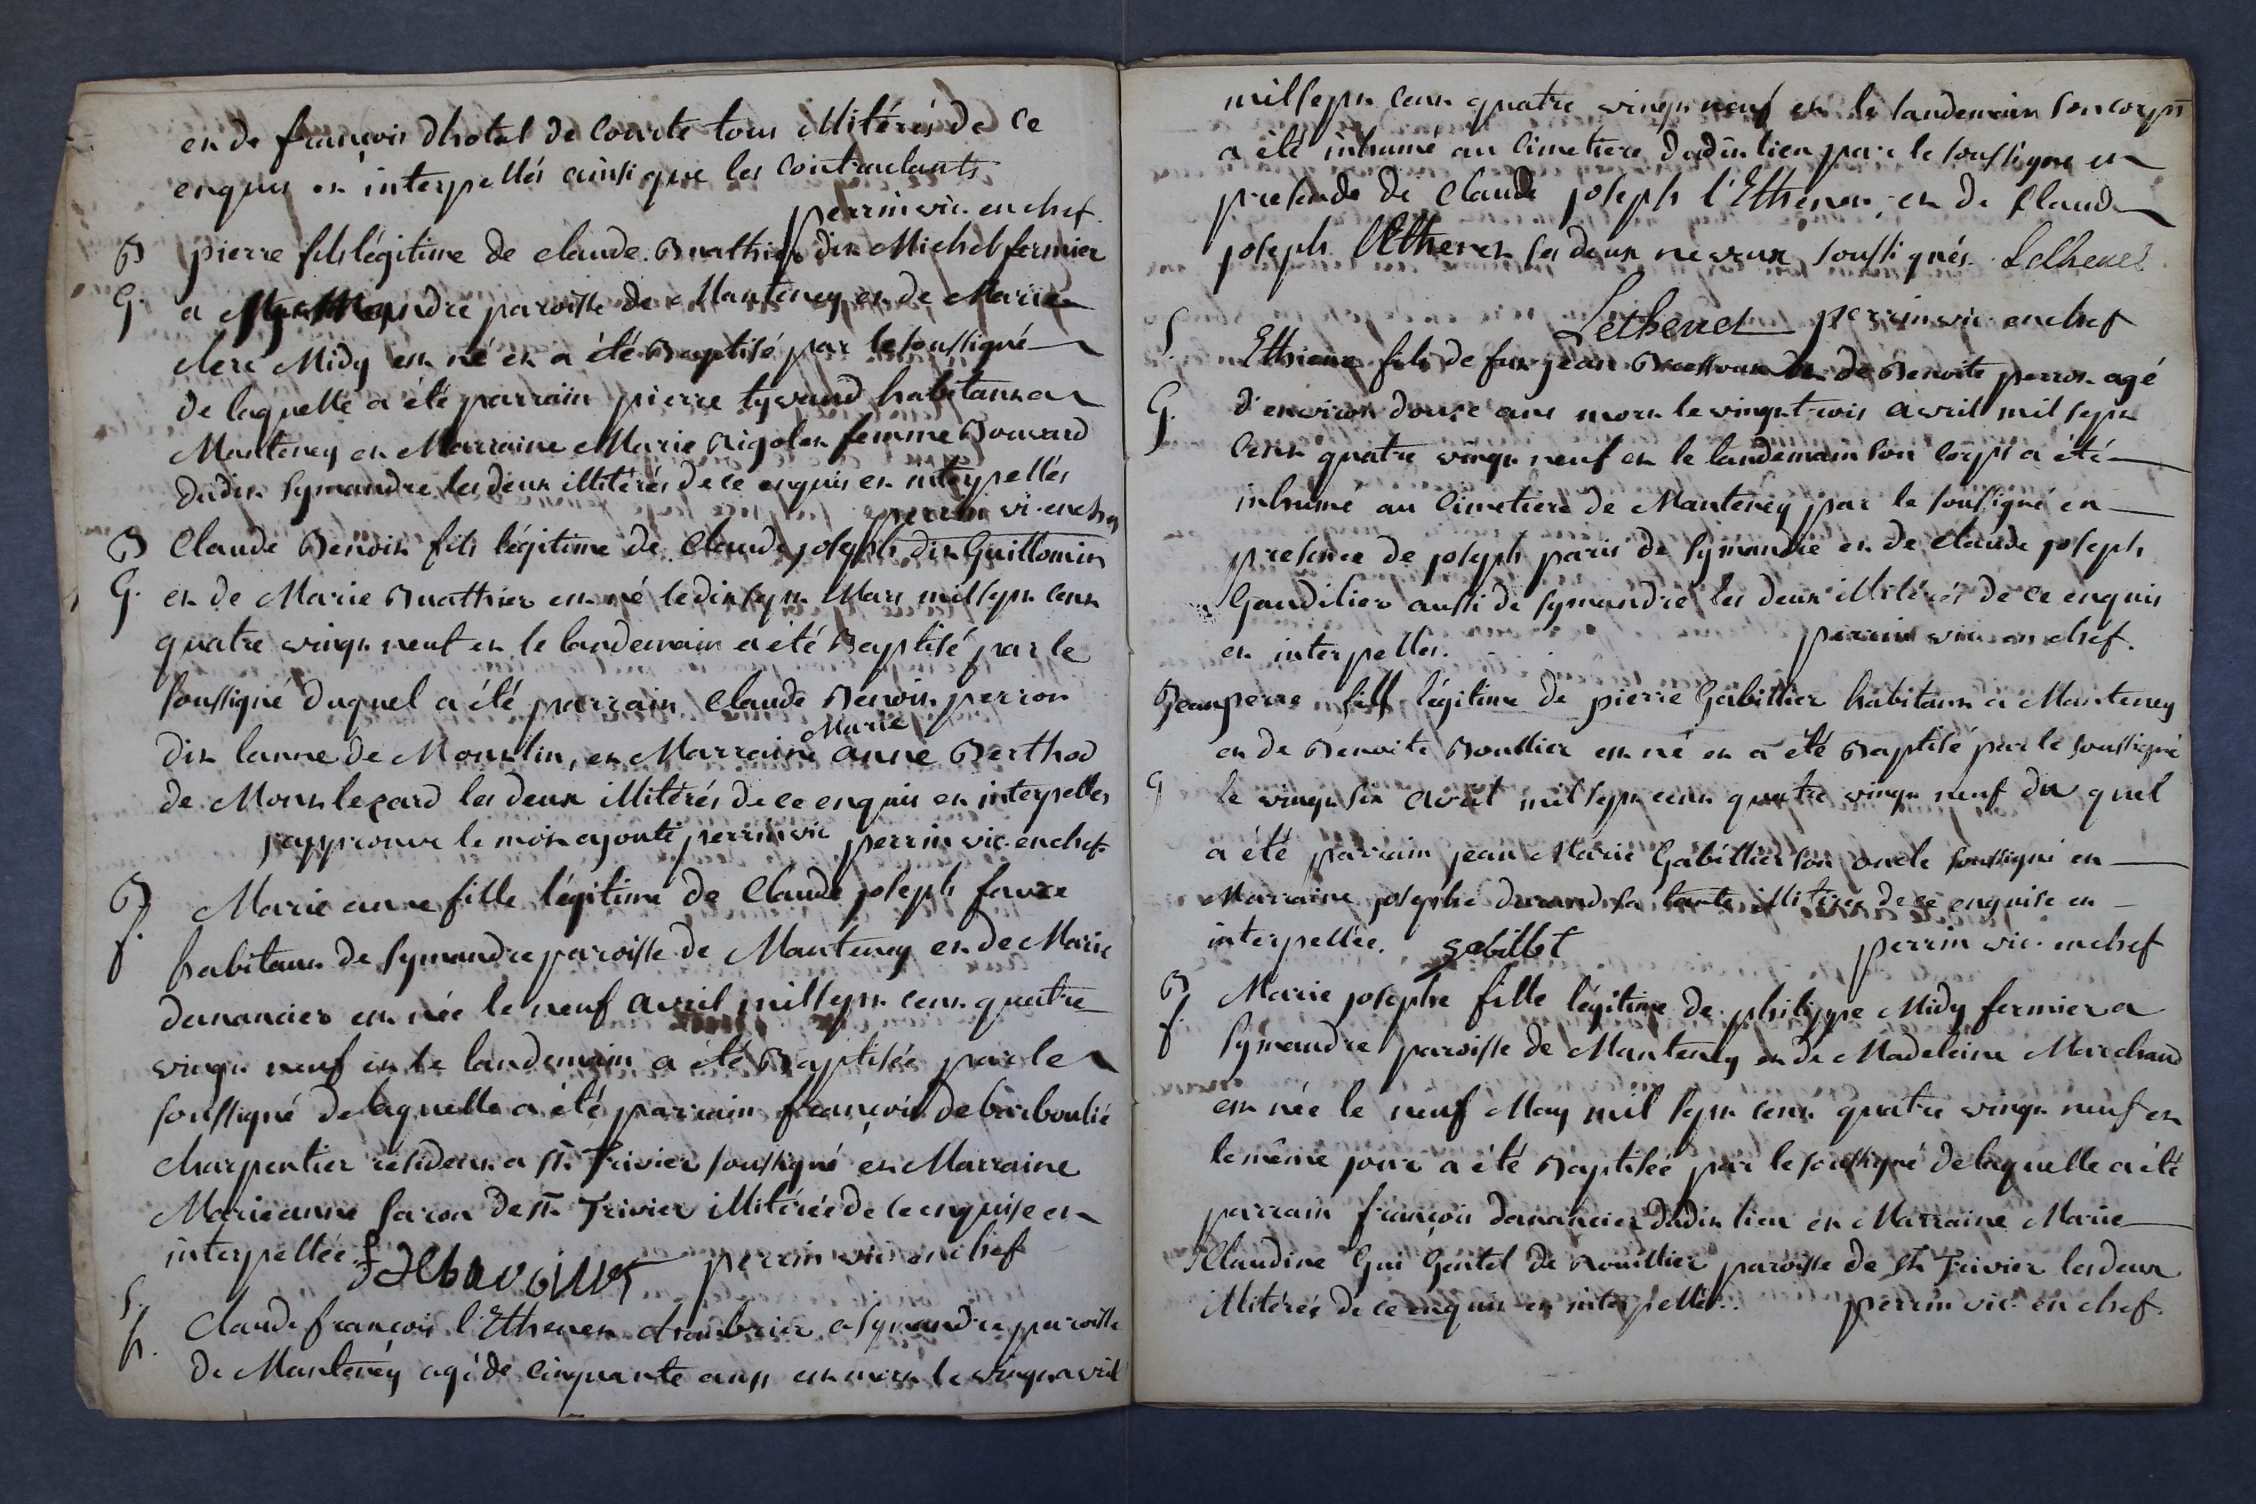 et de françois dhotel de Courte tous illitérés de ce
enquis et interpellés ainsi que les Contractants
perrin vic. en chef.
B pierre fils légitime de claude Buathier dit Michel fermier
G. a Symandre paroisse de Manteney et de Marie
clere Midy est né et a été Baptisé par le soussigné
de laquelle a été parrain pierre tyvand habitant a
Manteney et Marraine Marie Rigolet femme Bouvard
dudit Symandre les deux illitérés de ce enquis et interpellés
perrin vi. en chef
B Claude Benoit fils légitime de Claude joseph dit Guillomin
G. et de Marie Buathier est né le dixsept Mars mil sept cent
quatre vingt neuf et le landemain a été Baptisé par le
soussigné duquel a été parrain Claude Benoit perron
Marie
dit lanne de Montlin, et Marraine anne Berthod
de Montlezard les deux illitérés de ce enquis et interpelles
j'approuve le mot ajouté perrin vic perrin vic. en chef
B Marie anne fille légitime de Claude joseph favre
f. habitant de Symandre paroisse de Manteney et de Marie
danancier est née le neuf avril mil sept cent quatre
vingt neuf et le landemain a été Baptisée par le
soussigné de laquelle a été parrain françois debarboulié
charpentier résident a st Trivier soussigné et Marraine
Marieanne de st Trivier illitérée de ce enquise et
interpellée perrin vic en chef
S. Claude françois l'Ethenet chambrier a Symandre paroisse
h. de Manteney agé de Cinquante ans est mort le vingt avril
mil sept cent quatre vingt neuf et le landemain son corps
a été inhumé au Cimetiere dudit lieu par le soussigné en
presence de Claude joseph l'Ethenet, et de Claude
joseph l'Ethenet ses deux neveux soussignés. Lethenet
Lethenet perrin vic en chef
S. Ethienne fils de fut jean de Benoite perret agé
G. d'environ douze ans mort le vingt trois avril mil sept
Cent quatre vingt neuf et le landemain son Corps a été
inhumé au Cimetiere de Manteney par le soussigné en
presence de joseph paris de Symandre et de Claude joseph
Gaudilier aussi de Symandre les deux illitérés de ce enquis
et interpelles. perrin vic en chef.
B jean pierre fils légitime de pierre Gabillier habitant a Manteney
et de Benoite Boullier est né et a été Baptisé par le soussigné
G le vingt six avril mil sept cent quatre vingt neuf du quel
a été parrain jean Marie Gabillier son oncle soussigné et
Marraine josephe durand sa tante illitérée de ce enquise et
interpellée. gabillet perrin vic. en chef
B Marie josephe fille légitime de philippe Midy fermier a
f. Symandre paroisse de Manteney et de Madeleine Marchand
est née le neuf May mil sept cent quatre vingt neuf et
le même jour a été Baptisée par le soussigné de laquelle a été
parrain françois danancier dudit lieu et Marraine Marie
Claudine Gui Gentet de Rouillier paroisse de st Trivier les deux
illitérés de ce enquis et interpellés. perrin vic. en chef.